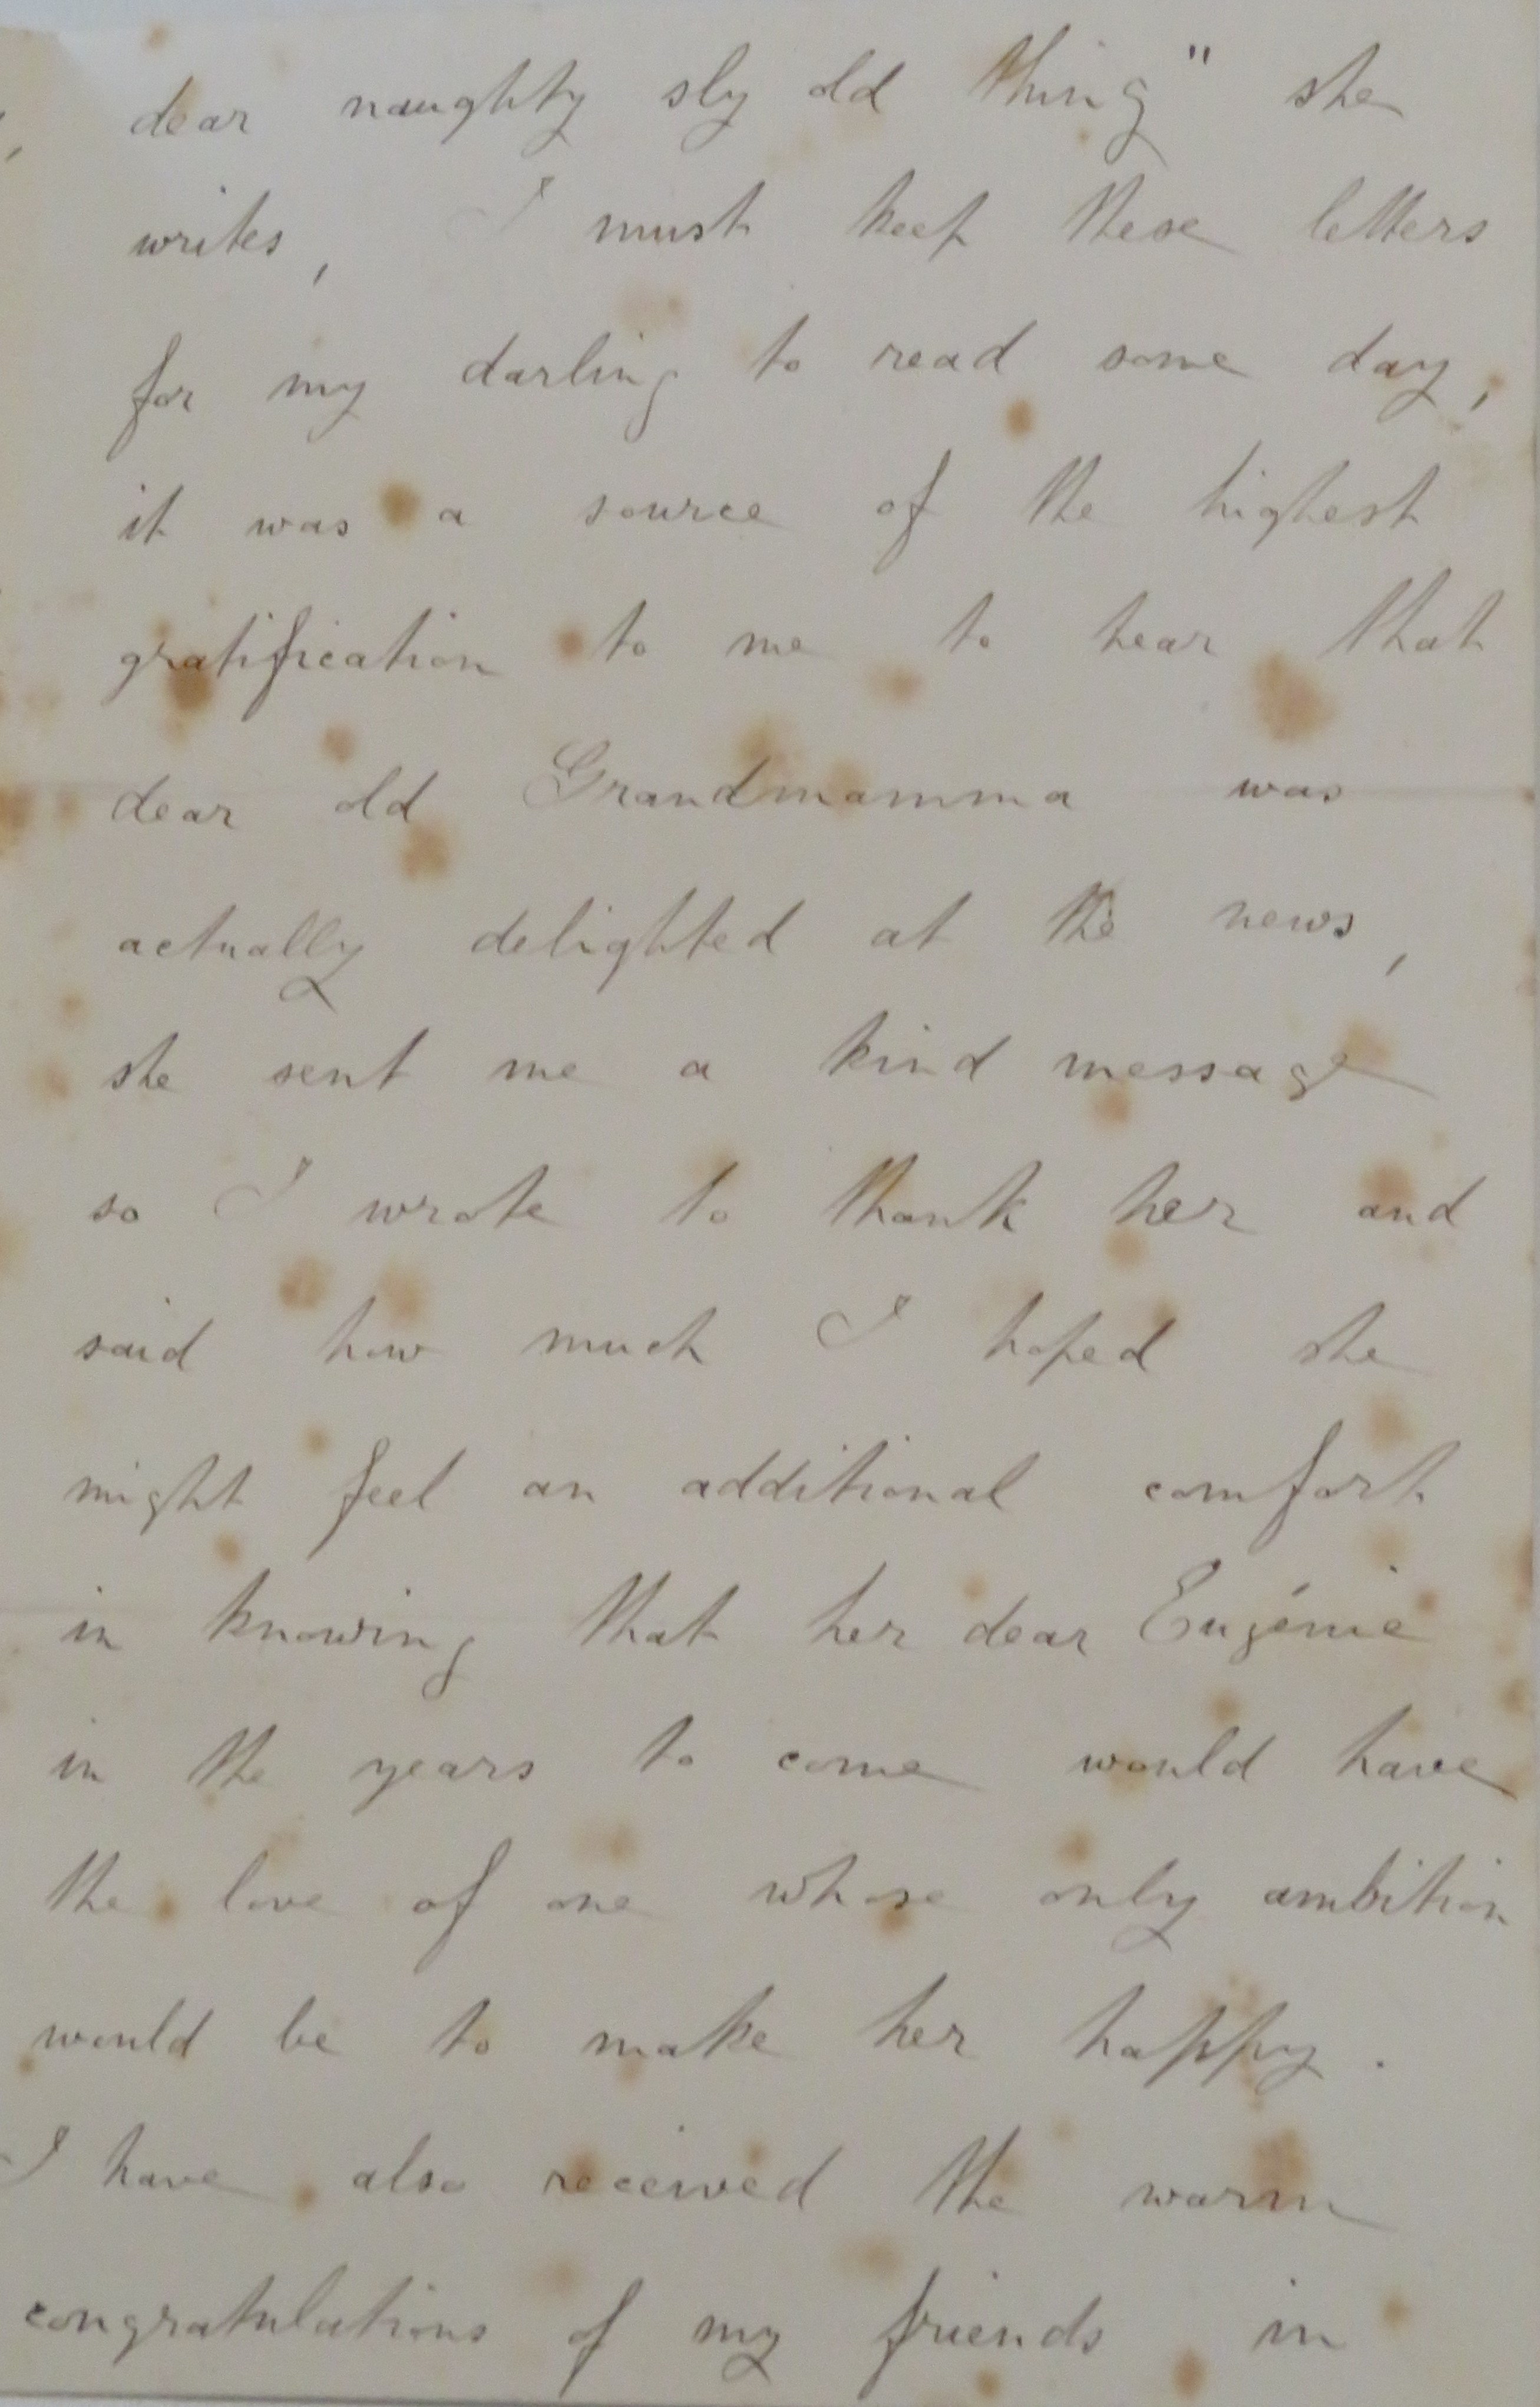 dear naughty sly old thing" she
writes, I must keep these letters
for my darling to read some day,
it was a source of the highest
gratification to me to hear that
dear old Grandmamma was
actually delighted at the news,
she sent me a kind message
so I wrote to thank her and
said how much I hoped she
might feel an additional comfort
in knowing that her dear Eugénie
in the years to come would have
the love of one whose only ambition
would be to make her happy.
I have also received the warm
congratulations of my friends in